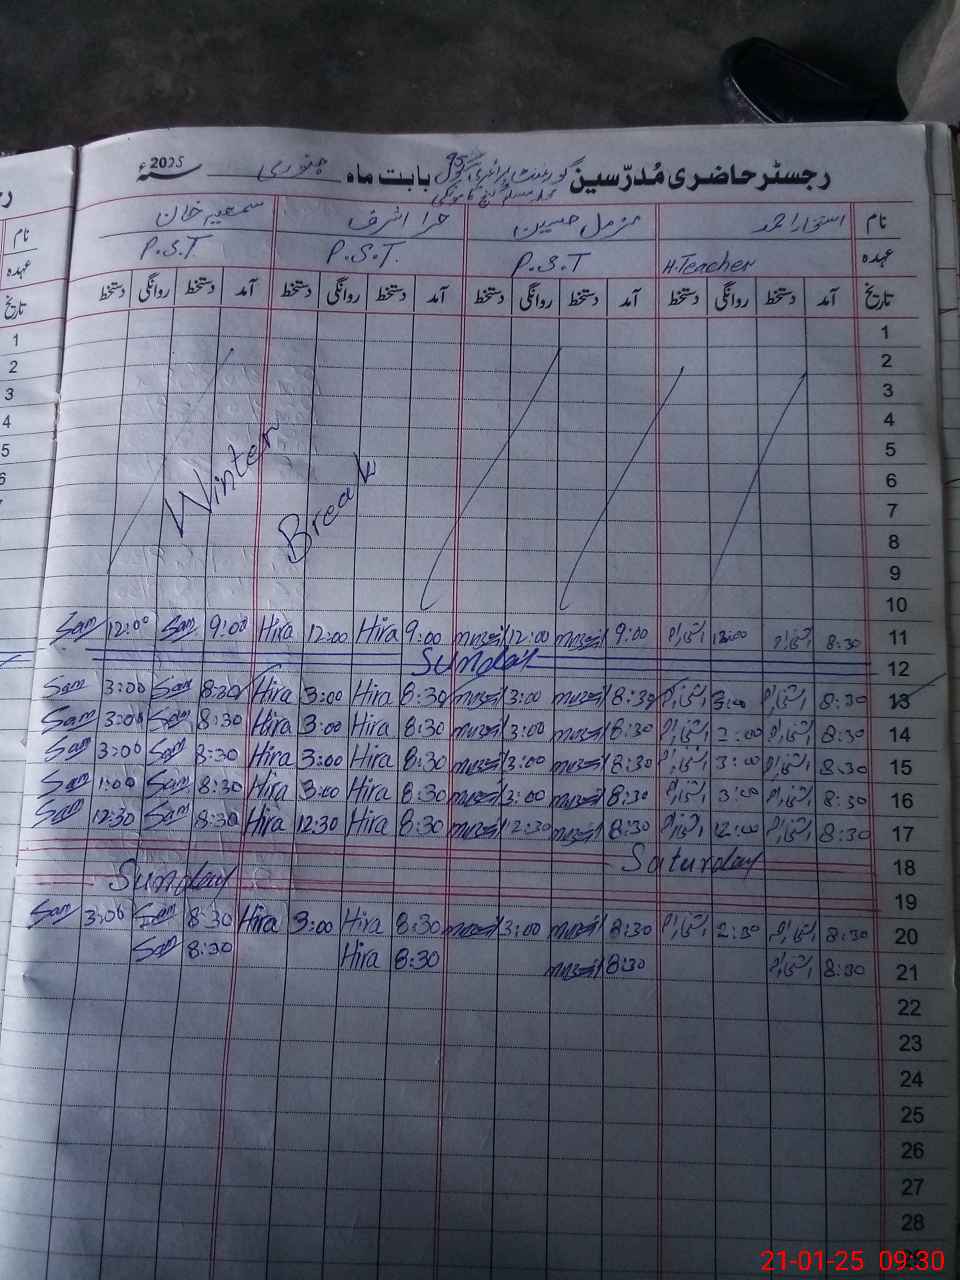 رجسٹر حاضری مُدرّسین گورنمنٹ پرائمری سکول بابت ماہ جنوری 2025ء
نام افتخار احمد مزمل حسین حرا اشرف سمعیہ خان
عہدہ H.Teacher P.S.T P.S.T. P.S.T.
تاریخ آمد دستخط روانگی دستخط آمد دستخط روانگی دستخط آمد دستخط روانگی دستخط آمد دستخط روانگی دستخط
1
2
3
4
5
6
7
8
9
10
Winter
Break
Sam 12:00 Sam 9:00 Hira 12:00 Hira 9:00 12:00 9:00 12:00 8:30 11
Sunday 12
Sam 3:00 Sam 8:30 Hira 3:00 Hira 8:30 3:00 8:30 3:00 8:30 13
Sam 3:00 Sam 8:30 Hira 3:00 Hira 8:30 3:00 8:30 2:00 8:30 14
Sam 3:00 Sam 8:30 Hira 3:00 Hira 8:30 3:00 8:30 3:00 8:30 15
Sam 1:00 Sam 8:30 Hira 3:00 Hira 8:30 3:00 8:30 3:00 8:30 16
Sam 12:30 Sam 8:30 Hira 12:30 Hira 8:30 12:30 8:30 12:00 8:30 17
Saturday 18
Sunday 19
Sam 3:00 Sam 8:30 Hira 3:00 Hira 8:30 3:00 8:30 2:30 8:30 20
Sam 8:30 Hira 8:30 8:30 8:30 21
22
23
24
25
26
27
28
21-01-25 09:30